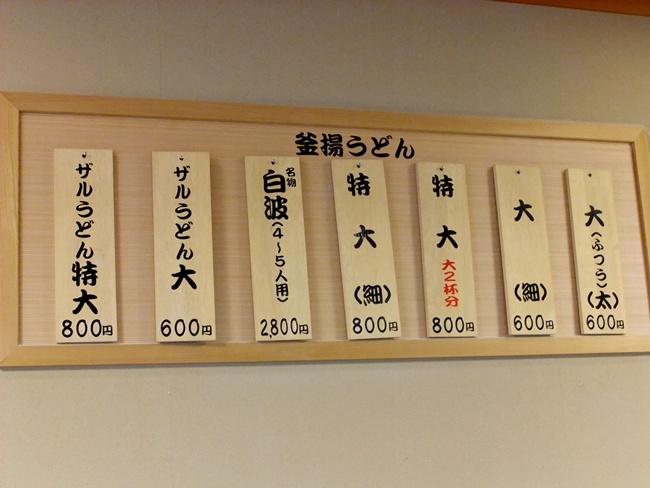 釜揚うどん
大(ふつう)(太)
600円
大(細)
600円
特大
大2杯分
800円
特大(細)
800円
名物
白波(4～5人用)
2,800円
ザルうどん大
600円
ザルうどん特大
800円